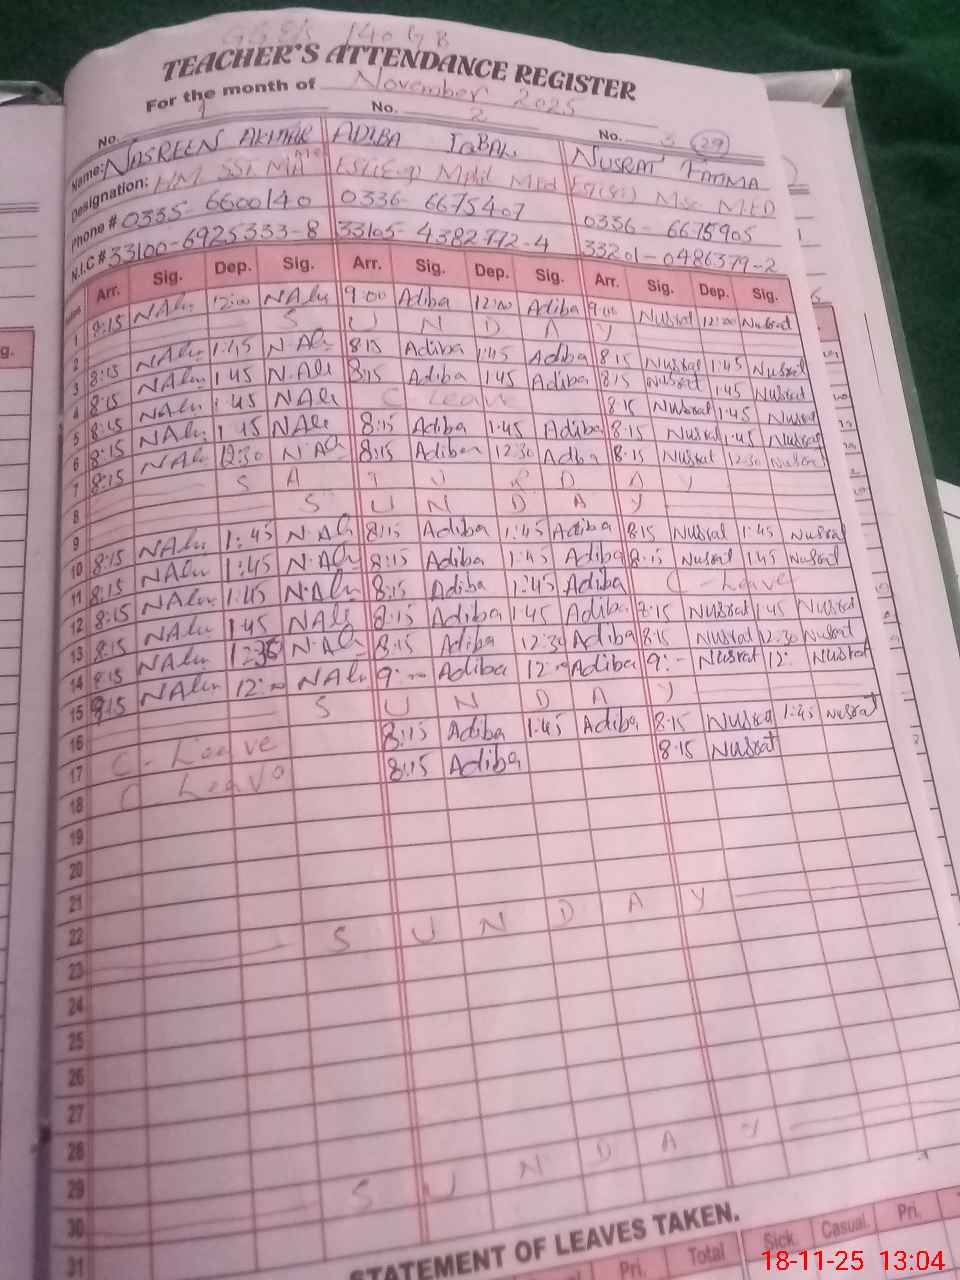 G.G.E/S 140 GB
TEACHER'S ATTENDANCE REGISTER
For the month of November 2025
No. 1 No. 2 No. 3 (29)
Name: NASREEN AKHTAR ADIBA IQBAL NUSRAT FATIMA
Designation: H/M SST MA MEd ESE(Eng) Mphil MEd ESE(Sci) Msc M.ED
Phone # 0335-6600140 0336-6675407 0336-6675905
N.I.C # 33100-6925333-8 33105-4382772-4 33201-0486379-2
Arr. Sig. Dep. Sig. Arr. Sig. Dep. Sig. Arr. Sig. Dep. Sig.
1 8:15 NAlu 12:00 NAlu 9:00 Adiba 12:00 Adiba 9:00 Nusrat 12:00 Nusrat
2 S U N D A Y
3 8:15 NAlu 1:45 N.Alu 8:15 Adiba 1:45 Adiba 8:15 Nusrat 1:45 Nusrat
4 8:15 NAlu 1:45 N.Alu 8:15 Adiba 1:45 Adiba 8:15 Nusrat 1:45 Nusrat
5 8:15 NAlu 1:45 NAlu C Leave 8:15 Nusrat 1:45 Nusrat
6 8:15 NAlu 1:45 NAlu 8:15 Adiba 1:45 Adiba 8:15 Nusrat 1:45 Nusrat
7 8:15 NAlu 12:30 N.Alu 8:15 Adiba 12:30 Adiba 8:15 Nusrat 12:30 Nusrat
8 S A T U R D A Y
9 S U N D A Y
10 8:15 NAlu 1:45 N.Alu 8:15 Adiba 1:45 Adiba 8:15 Nusrat 1:45 Nusrat
11 8:15 NAlu 1:45 N.Alu 8:15 Adiba 1:45 Adiba 8:15 Nusrat 1:45 Nusrat
12 8:15 NAlu 1:45 N.Alu 8:15 Adiba 1:45 Adiba C-Leave
13 8:15 NAlu 1:45 NAlu 8:15 Adiba 1:45 Adiba 8:15 Nusrat 1:45 Nusrat
14 8:15 NAlu 12:30 N.Alu 8:15 Adiba 12:30 Adiba 8:15 Nusrat 12:30 Nusrat
15 8:15 NAlu 12:00 NAlu 9:- Adiba 12:- Adiba 9:- Nusrat 12: Nusrat
16 S U N D A Y
17 C-Leave 8:15 Adiba 1:45 Adiba 8:15 Nusrat 1:45 Nusrat
18 C Leave 8:15 Adiba 8:15 Nusrat
19
20
21
22
23 S U N D A Y
24
25
26
27
28
29
30 S U N D A Y
31
STATEMENT OF LEAVES TAKEN.
Pri. Total Sick. Casual. Pri.
18-11-25 13:04